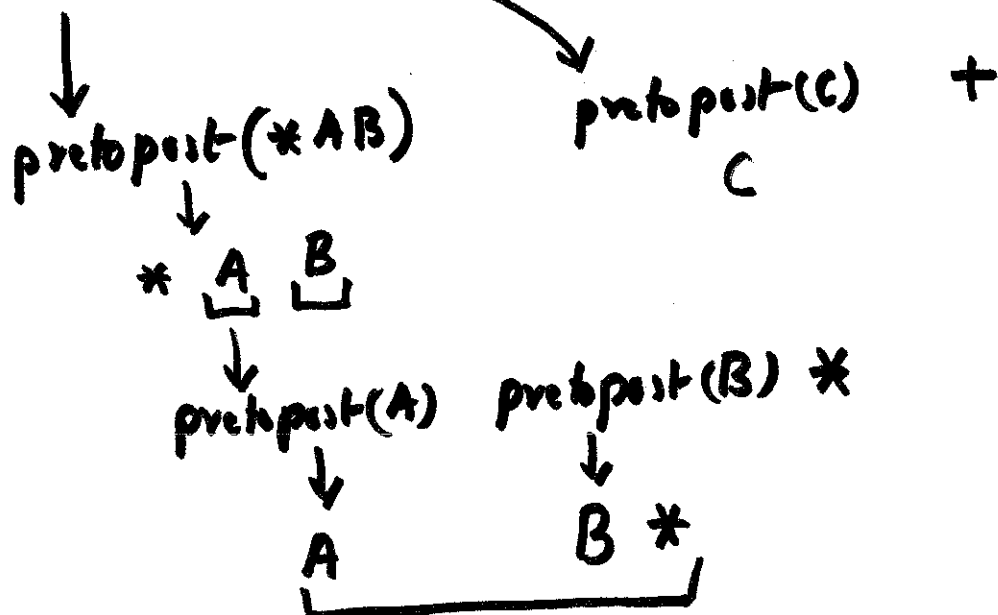 pretopost(*AB) pretopost(C) +
C
* A B
pretopost(A) pretopost(B) *
A B *